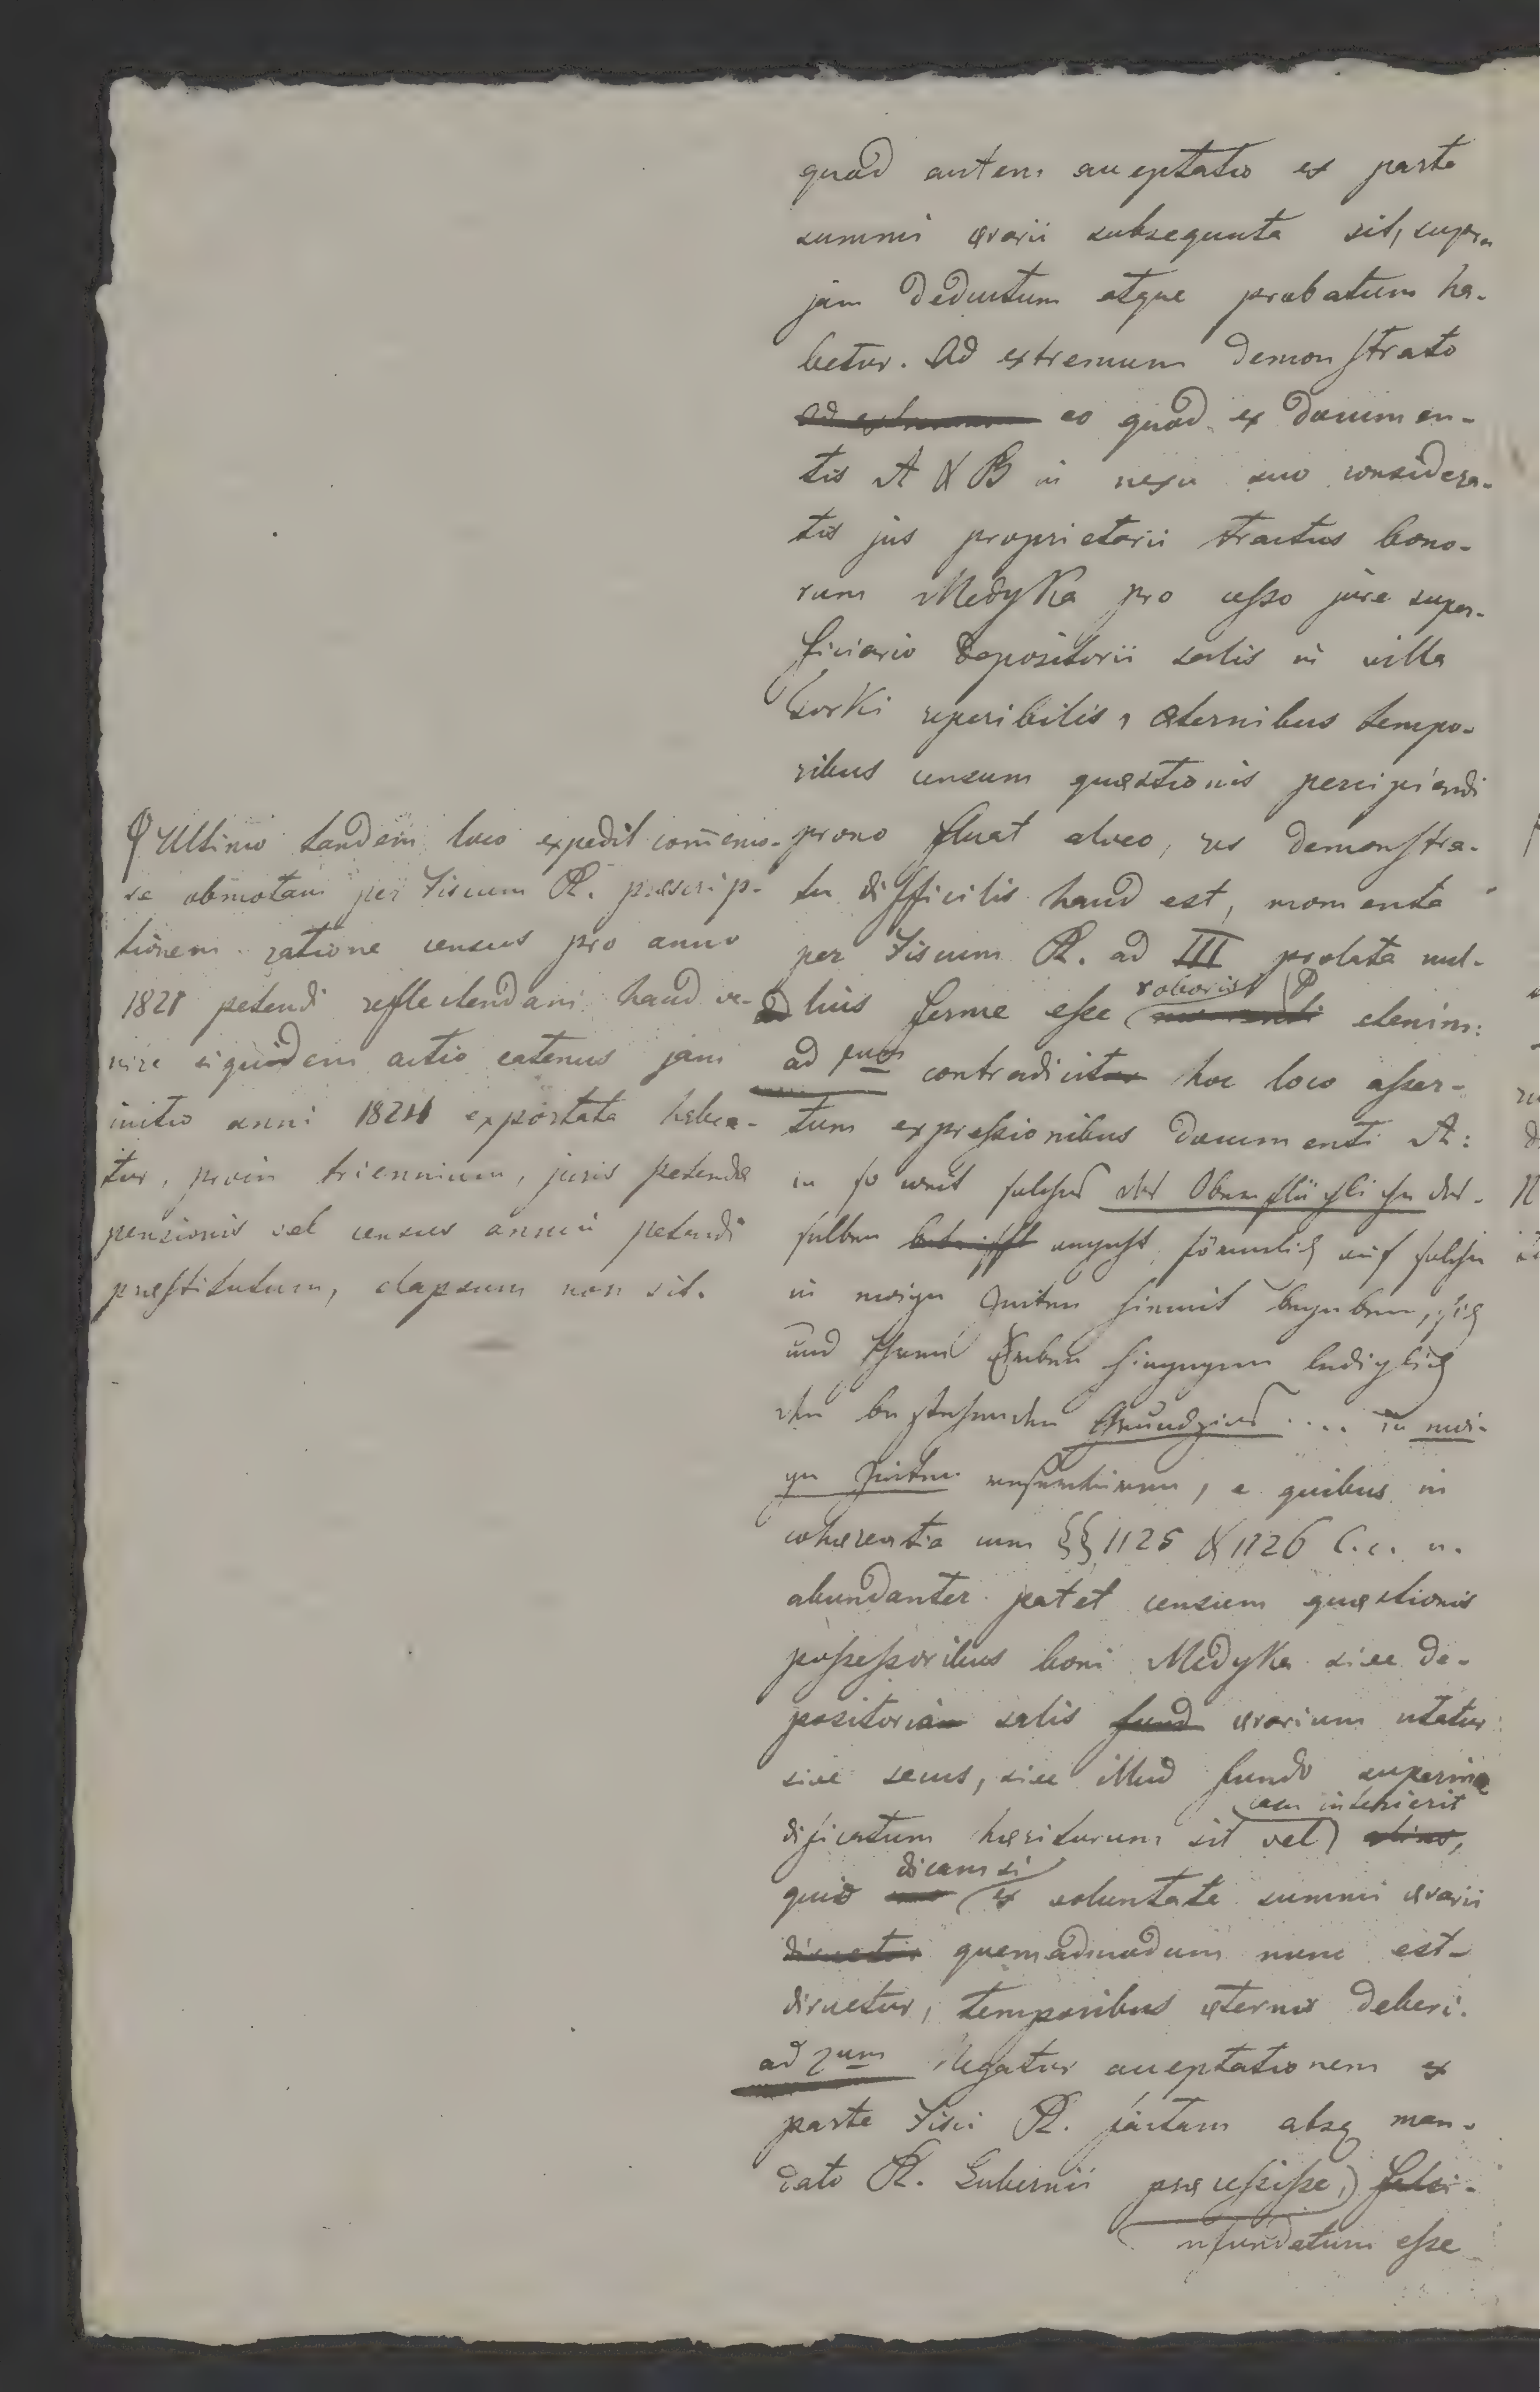 quod autem acceptatio ex parte
summi ærarii subsequuta sit, supra
jam deductum atque probatum ha-
betur. Ad extremum demonstrato
ad extremum eo quod ex documen-
tis A & B in nexu suo considera-
tis jus proprietarii tractus bono-
rum Medyka pro cesso jure super-
ficiario depositorii salis in villa
Torki reperibilis, æternibus tempo-
ribus censum quæstionis percipiendi
prono fluat alveo, res demonstra-
tu difficilis haud est, momenta
per Fiscum R. ad III prolata nul-
lius ferme esse roboris etenim:
ad 1um contradicit hoc loco asser-
tum expressionibus documenti A:
in so weit solches das Oberflächliche des-
selben betrifft angeht, förmlich auf solche
in ewige Zeiten hiemit begeben, sich
und Ihren Erben hingegen lediglich
den bestehenden Grundzins .... in ewi-
ge Zeiten, e quibus in
cohærentia cum §§ 1125 & 1126 C.c. u.
abundanter patet censum quæstionis
possessoribus boni Medyka sive de-
positoria salis fund ærarium utatur
sive secus, sive illud fundo superinæ
dificatum hæsiturum sit vel casu interierit
quid dicam si ex voluntate summi ærarii
diruetur quemadmodum nunc est-
diruetur, temporibus æternis deberi.
ad 2um Negatur acceptationem ex
parte Fisci R. factam absq man-
dato R. Gubernii præcessisse,
nfundatum esse
Ultimo tandem loco expedit com̄emo-
ra obmotam per Fiscum R. præscrip-
tionem ratione census pro anno
1821 petendi reflectendam haud ve-
nire siquidem actio eatenus jam
initio anni 1824 exportata habea-
tur, proin triennium, juris petendæ
pensionis vel census annui petendi
præstitutum, elapsum non sit.